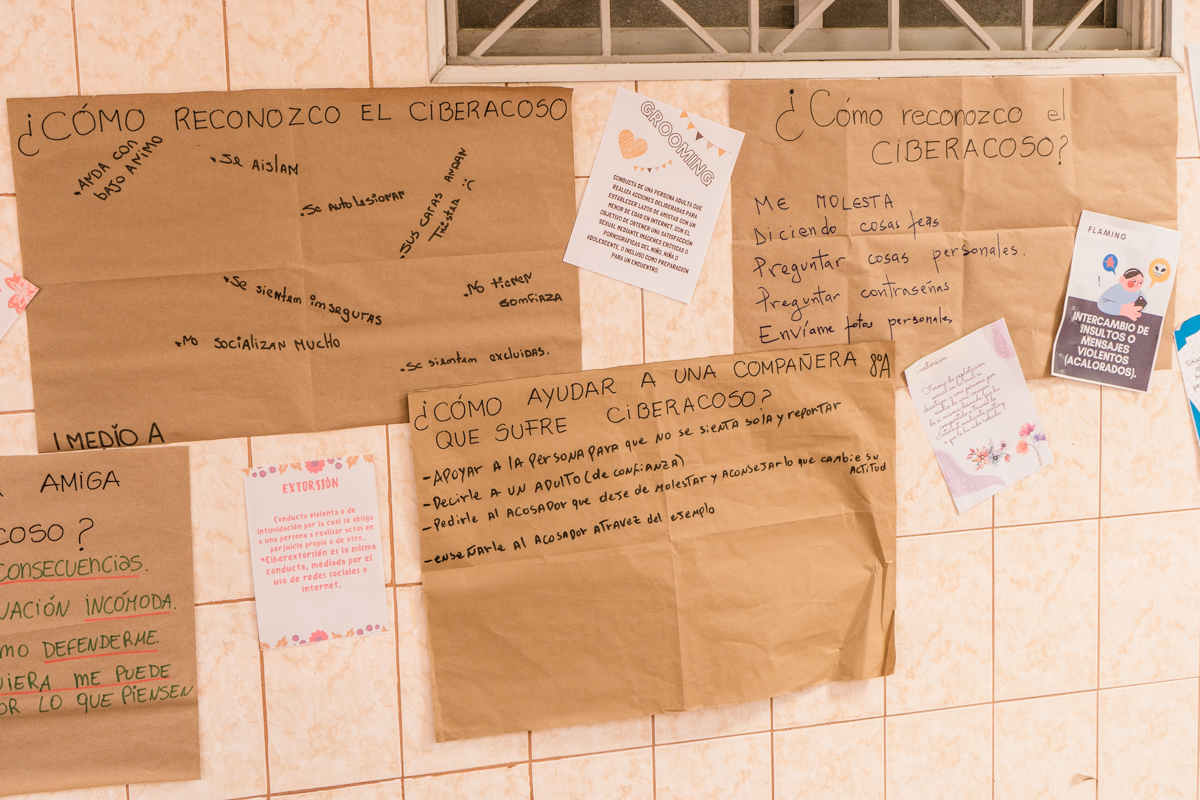 ¿CÓMO RECONOZCO EL CIBERACOSO
•ANDA CON
BAJO ANIMO
•Se AISLAM
•Se Autolesionan
•SUS CARAS ANDAN
Tristes :(
•Se sientem inseguras
•No tienen
comfiaza
•No SOCIALIZAN MUCHO
•Se sientem excluidas.
I MEDIO A
GROOMING
CONDUCTA DE UNA PERSONA ADULTA QUE
REALIZA ACCIONES DELIBERADAS PARA
ESTABLECER LAZOS DE AMISTAD CON UN
MENOR DE EDAD EN INTERNET, CON EL
OBJETIVO DE OBTENER UNA SATISFACCIÓN
SEXUAL MEDIANTE IMÁGENES ERÓTICAS O
PORNOGRÁFICAS DEL NIÑO, NIÑA O
ADOLESCENTE, O INCLUSO COMO PREPARACIÓN
PARA UN ENCUENTRO.
¿Cómo reconozco el
CIBERACOSO?
ME MOLESTA
Diciendo cosas feas
Preguntar cosas personales.
Preguntar contraseñas
Envíame fotos personales
FLAMING
INTERCAMBIO DE
INSULTOS O
MENSAJES
VIOLENTOS
(ACALORADOS).
Sextorsión
Forma de explotación
sexual en la cual se
chantajea a una persona por
medio de una imagen
de sí misma desnuda que ha
compartido a través de
Internet mediante sexting
¿CÓMO AYUDAR A UNA COMPAÑERA 8°A
QUE SUFRE CIBERACOSO?
-APOYAR A LA PERSONA PARA QUE NO SE SIENTA SOLA Y REPORTAR
-Decirle A UN ADULTO (de CONFIANZA)
-Pedirle AL ACOSADOR que deje de MOLESTAR Y ACONSEJARLO QUE CAMBIE SU
ACTITUD
-ENSEÑARLE AL ACOSADOR ATRAVEZ del ejemplo
AMIGA
COSO?
CONSECUENCIAS.
UACIÓN INCÓMODA.
MO DEFENDERME.
UIERA ME PUEDE
OR LO QUE PIENSEN
EXTORSIÓN
Conducta violenta o de
intimidación por la cual se obliga
a una persona a realizar actos en
perjuicio propio o de otro.
*Ciberextorsión es la misma
conducta, mediada por el
uso de redes sociales o
internet.